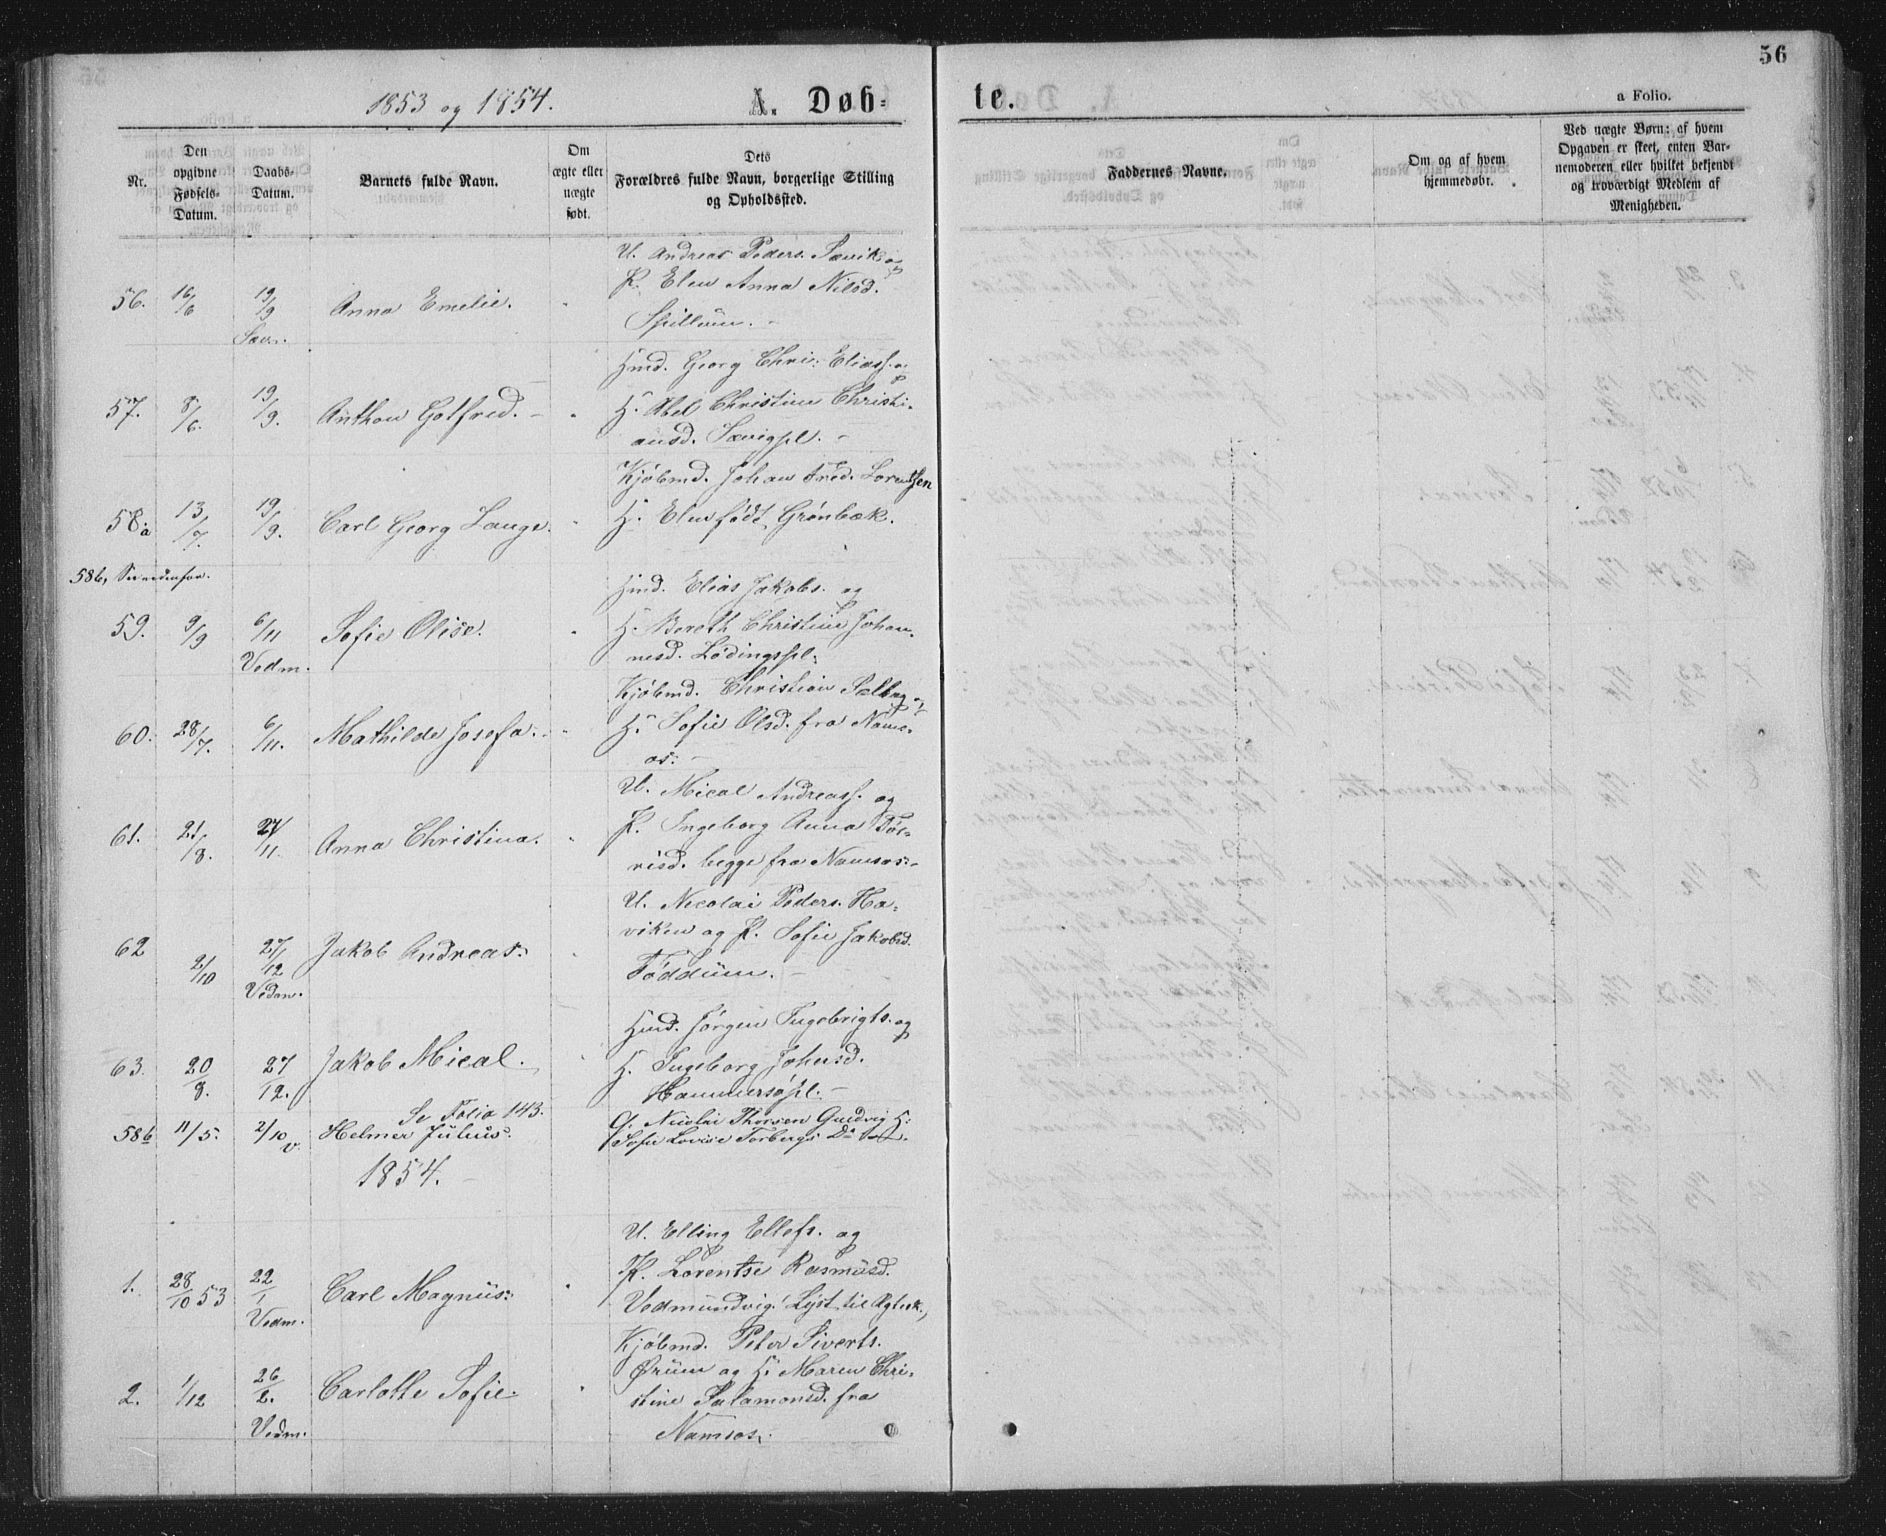 56
1853 og 1854.
A. Døb-
te.
a Folio.
Nr.
Den
opgivne
Fødsels-
Datum.
Daabs-
Datum.
Barnets fulde Navn.
Om
ægte eller
uægte
født.
Dets
Forældres fulde Navn, borgerlige Stilling
og Opholdssted.
Faddernes Navne.
Om og af hvem
hjemmedøbt.
Ved uægte Børn: af hvem
Opgaven er skeet, enten Bar-
nemoderen eller hvilket bekjendt
og troværdigt Medlem af
Menigheden.
U. Andreas Peders. Sævik og
P. Elen Anna Nilsd.
56. 16/6 19/9 Anna Emelie.
Spillum.
Sæv.
Hmd. Georg Chri: Eliass. og
57. 8/6. 19/9. Anthon Gotfred.
H. Abel Christine Christi-
ansd. Sævigpl.
Kjöbmd. Johan Fred. Lorentsen
58a 13/7. 19/9. Carl Georg Lange.
H. Elen født Grønbæk.
58b, Se nedenfor.
Hmd. Elias Jakobs. og
59. 9/9 6/11 Sofie Olise.
H. Bereth Christine Johan-
Vedm.
nesd. Lödingspl.
Kjöbmd. Christian
60. 28/7. 6/11. Mathilde Josefa.
H. Sofie Olsd. fra Nams-
os.
U. Mical Andreass. og
61. 21/8. 27/11. Anna Christina.
P. Ingeborg Anna
risd. begge fra Namsos.
U. Nicolai Peders. Ha-
62 2/10 27/12 Jakob Andreas.
viken og P. Sofie Jakobsd.
Vedm.
Föddum.
Hmd. Jörgen Ingebrigts. og
63. 20/8. 27/12. Jakob Mical.
H. Ingeborg Johnsd.
Hammersöpl.
Se Folio 143.
58b 11/5. 2/10 v. Helmer Julius.
G. Nicolai Thorsen Gudvig H:
Sofie Lovise Torbergs Dr
1854.
U. Elling Ellefs. og
1. 28/10 53 22/1 Carl Magnus.
P. Lorentse Rasmusd.
Vedm.
Vedmundvig. Lyst til Ægtesk.,
Kjöbmd. Peter Siverts.
2. 1/12 26/2. Carlotte Sofie.
Ørum og H. Maren Chri-
stine Salamonsd. fra
Vedm.
Namsos.